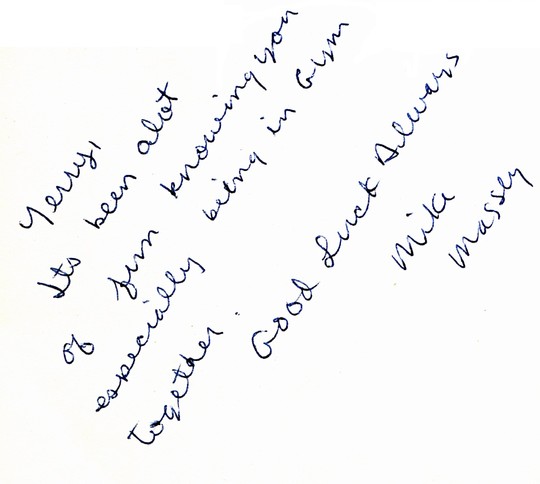 Yerry,
Its been alot
of fun knowing you
especially being in Gym
together.
Good Luck Always
Mike
Massey